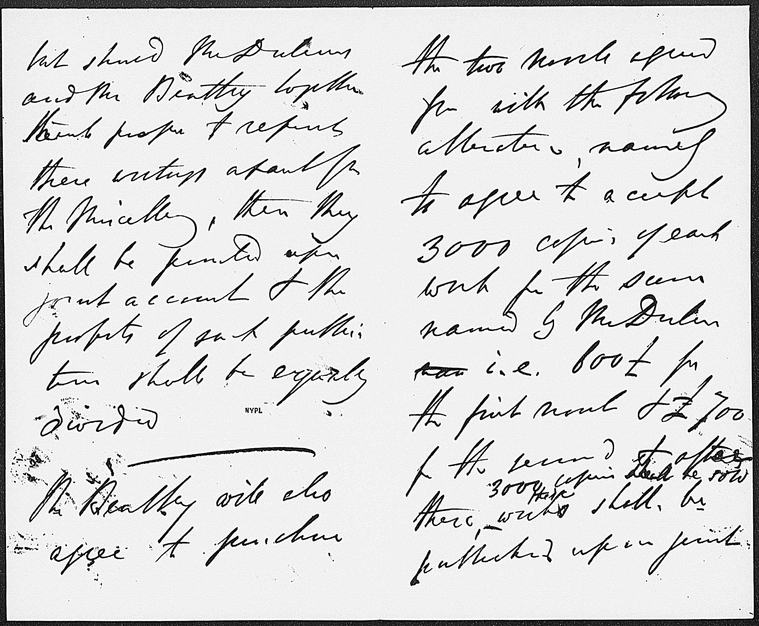 but should Mr Dickens
and Mr Bentley together
think proper to reprint
these writings apart from
the Miscellany, then they
shall be printed upon
joint account & the
profits of such publica
tion shall be equally
divided
NYPL
Mr Bentley will also
agree to purchase
the two novels agreed
for with the following
alterations, namely
to agree to accept
3000 copies of each
work for the sum
named by Mr Dickens
i.e. 600£ for
the first novel & £700
for the second & after
3000 copies shall be sold
these works shall be
published upon joint